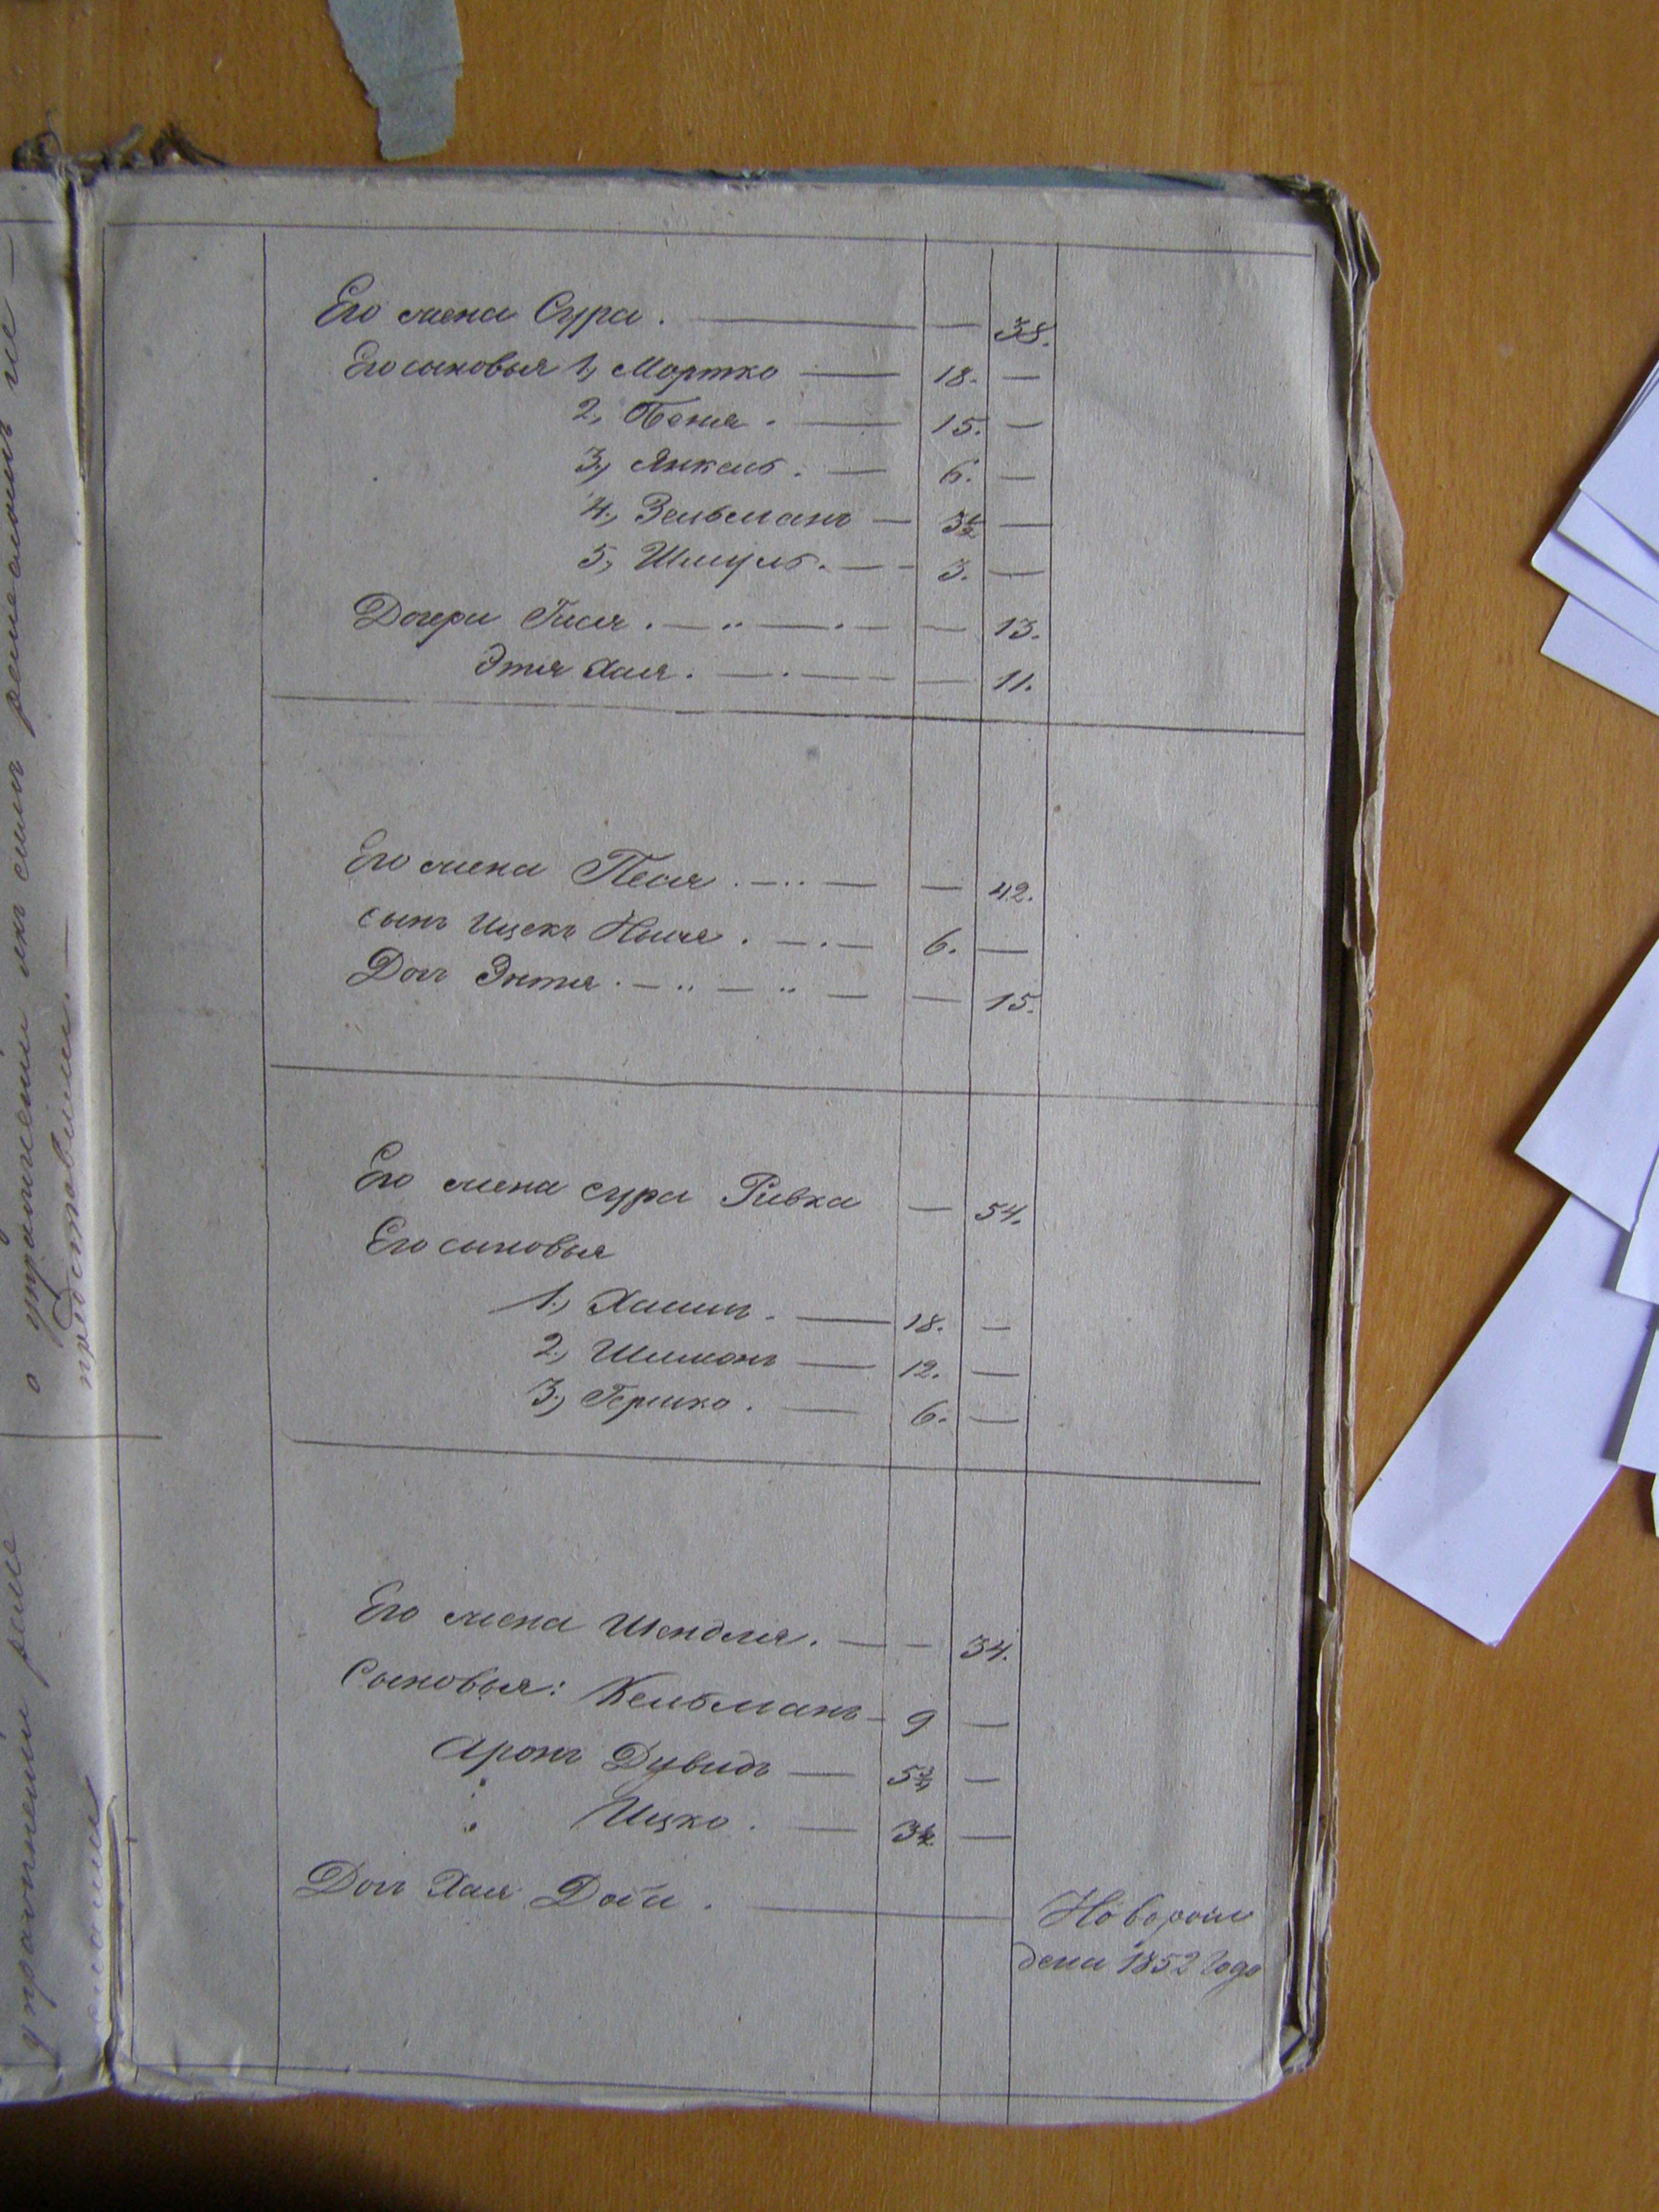 Его жена Сура. — — 38.
Его сыновья 1, Мортко — 18. —
2, Беня. — 15. —
3, Янкель. — 6. —
4, Зельманъ — 3½ —
5, Шмуль. — — 3. —
Дочери Гися. — „ — . — — 13.
Этя Хая. — . — — — 11.
Его жена Песя. — .. — — 42.
сынъ Ицекъ . — . — 6. —
Доч Энтя. — „ — „ — — 15.
Его жена сура Ривка — 54.
Его сыновья
1, Хаимъ. — 18. —
2, Шимонъ — 12. —
3, Гершко. — 6. —
Его жена Шендля. — — 34.
Сыновья: Кельманъ — 9 —
Аронъ Дувидъ — 5¾ —
„ Ицко. — 3½ —
Доч Хая Доба. —
Новорож
дена 1852 года